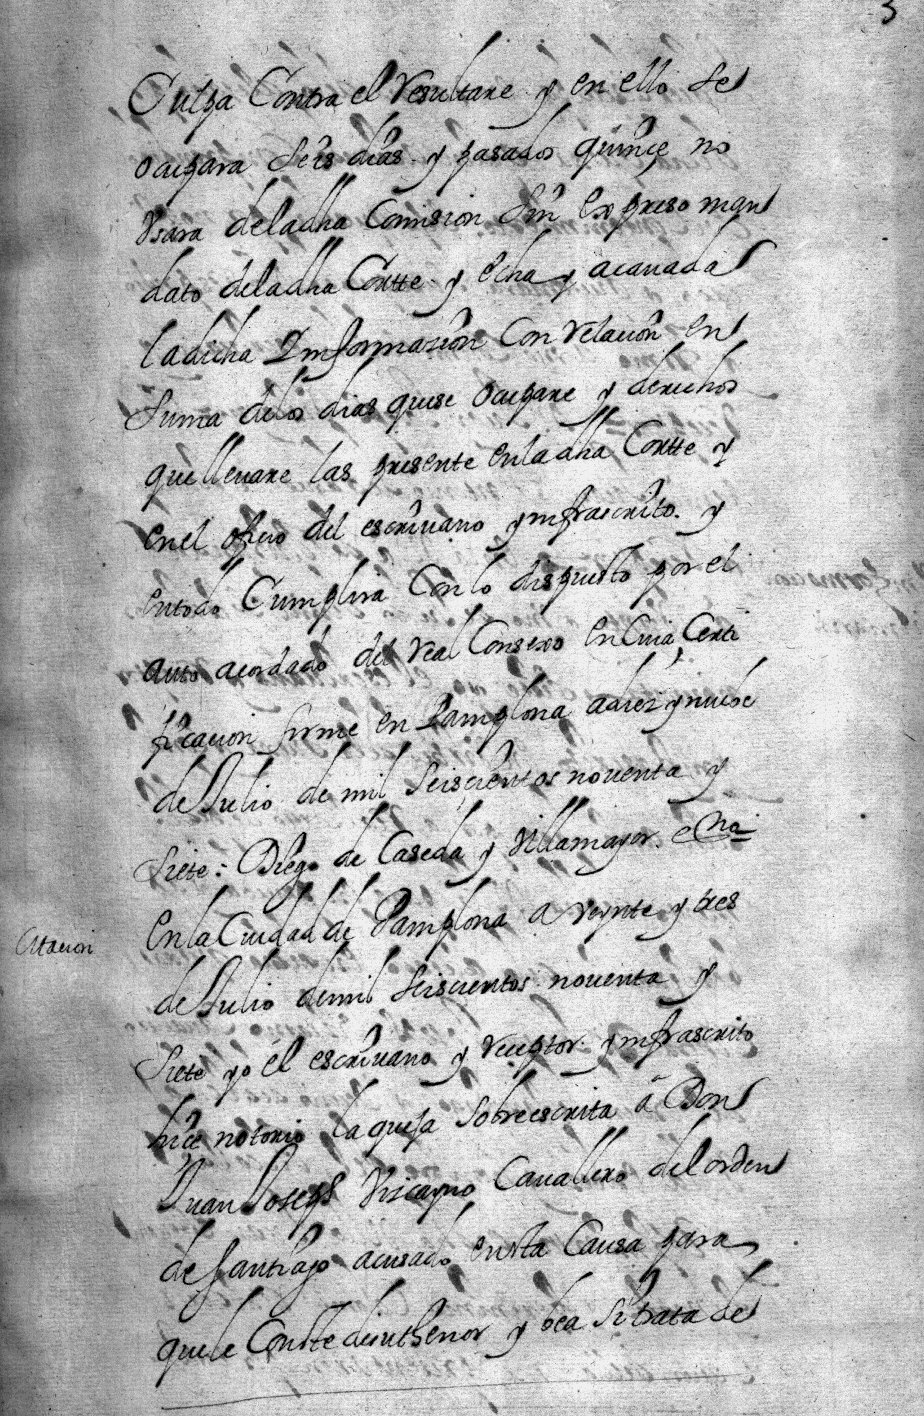 3
Culpa Contra el Resultare y en ello se
ocupara seis dias y pasados quinçe no
Usara deladha Comision sin expreso man
dato deladha Cortte y echa y acauada
ladicha Informazion Con Relaçion en
suma delos dias quese ocupare y derechos
quellevare las presente enladha Cortte y
enel ofiçio del escriuano ynfrascrito y
entodo Cumplira Conlo dispuesto por el
auto acordado del Real Consexo en Cuia Çerti
ficacion firme en Pamplona adiez y nuebe
de Jullio de mil seiscientos nouenta y
siete: Diego de Caseda y Villamayor
Citacion
enla Ciudad de Pamplona a veynte y tres
de Jullio demil seiscientos nouenta y
siete yo el escriuano y Receptor ynfrascrito
hiçe notorio la quexa sobreescrita a Don
Juan Joseph Vizcayno Cauallero del orden
de santiago acusado enesta Causa para
quele Conste desuthenor y bea si trata de